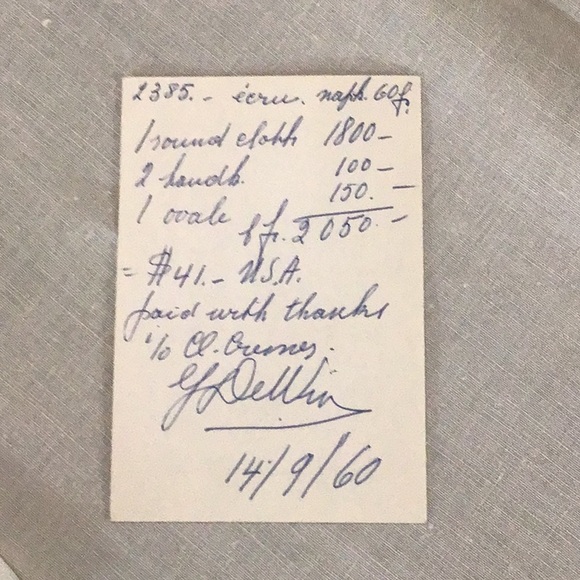 2385.- écru. naph. 60f.
1 round cloth 1800-
2 handk. 100-
1 ovale 150.-
bf. 2050.-
= $41.- U.S.A.
paid with thanks
14/9/60